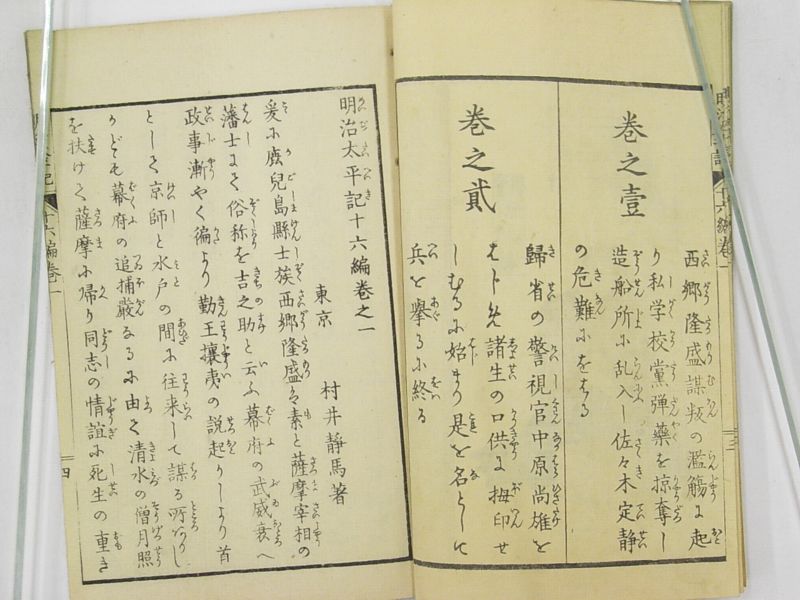 巻之壹
西郷隆盛謀叛の濫觴に起
り私学校黨弾藥を掠奪し
造船所に乱入し佐々木定静
の危難にをはる
巻之貳
歸省の警視官中原尚雄を
はじめ諸生の口供に拇印せ
しむるに始まり是を名として
兵を擧るに終る
明治太平記十六編巻之一
東京 村井静馬著
爰に鹿兒島縣士族西郷隆盛ハ素と薩摩宰相の
藩士にて俗称を吉之助と云ふ幕府の武威衰へ
政事漸やく徧より勤王攘夷の説起りしより首
として京師と水戸の間に往来して謀る所ありし
かども幕府の追捕嚴なるに由て清水の僧月照
を扶けて薩摩に帰り同志の情誼に死生の重き
十六編巻一
四